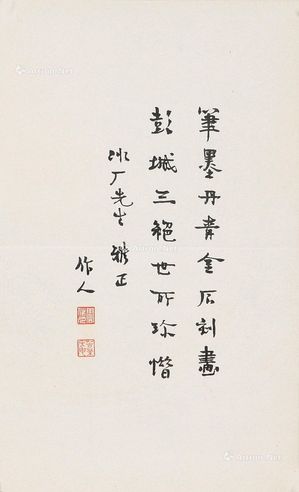 笔墨丹青金石刻畫
彭城三絕世所珍惜
冰厂先生 雅正
作人
Artron.Net
Artron.Net